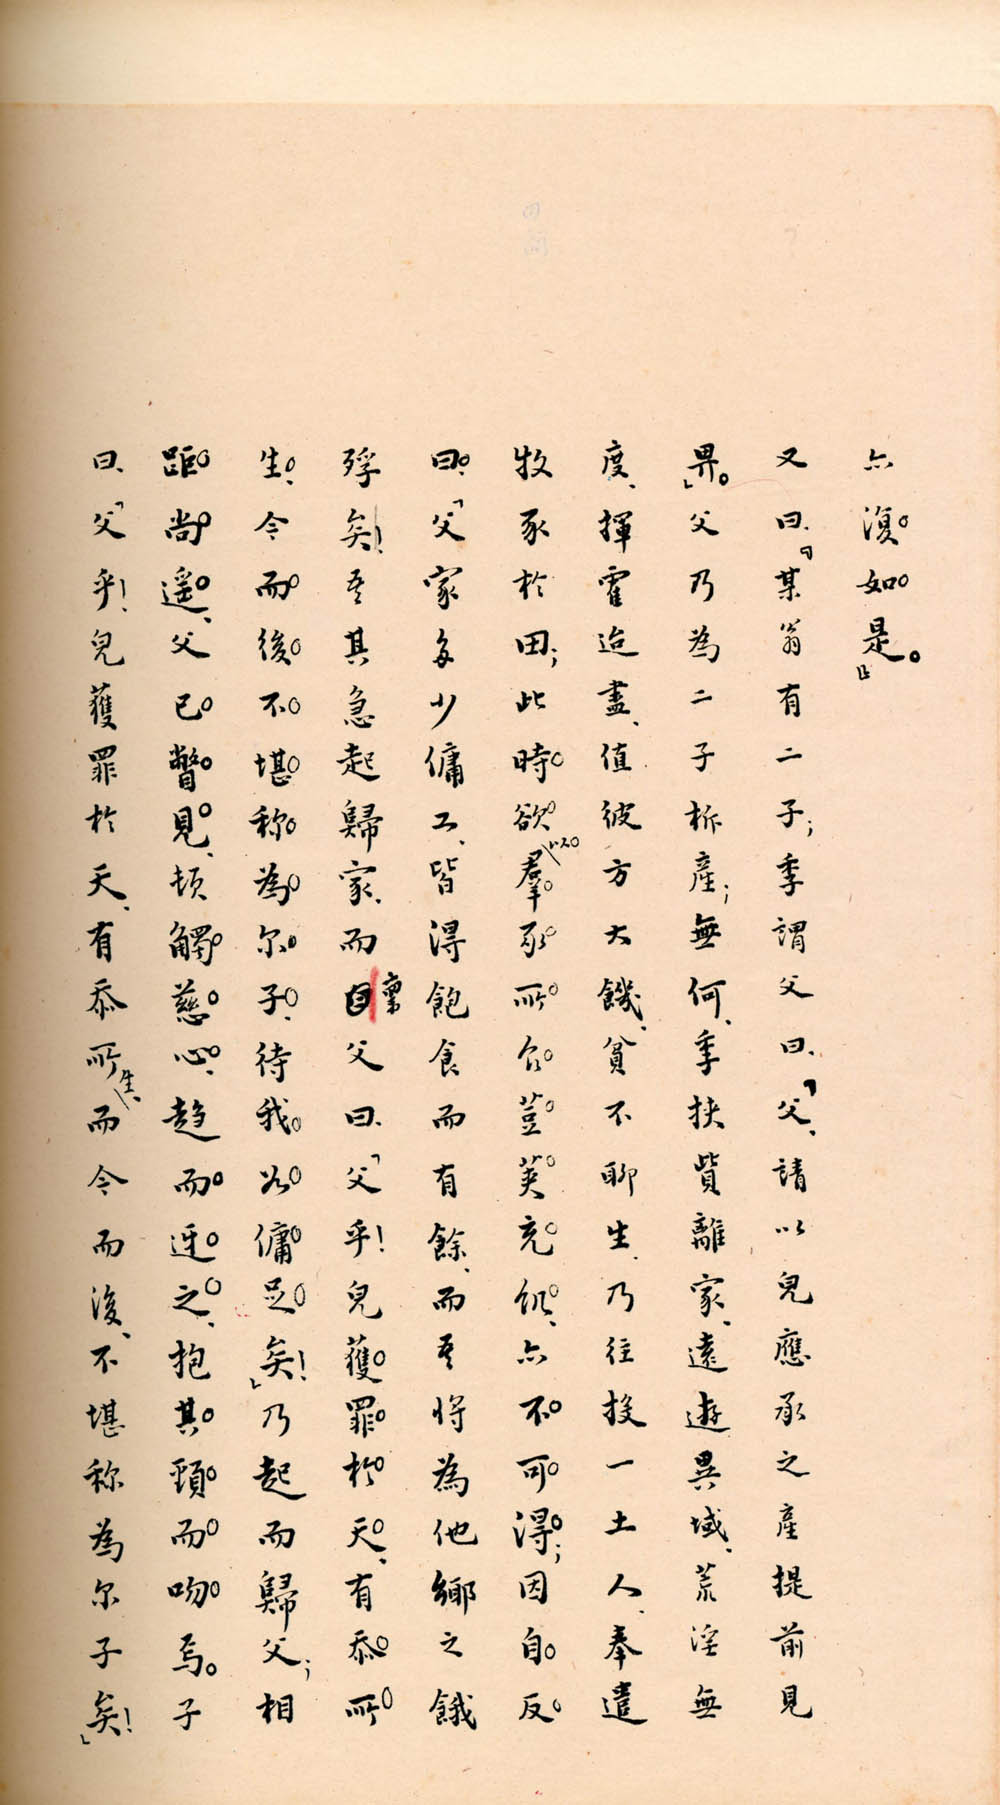 亦復如是。』
又曰、『某翁有二子；季謂父曰、「父、請以兒應承之產提前見
畀。」父乃為二子析產；無何、季挾貲離家、遠遊異域、荒淫無
度、揮霍迨盡、值彼方大饑、貧不聊生、乃往投一土人、奉遣
牧豕於田；此時欲以羣豕所食荳莢充飢、亦不可得；因自反
曰、「父家多少傭工、皆得飽食而有餘、而吾將為他鄉之餓
殍矣！吾其急起歸家、而稟父曰、「父乎！兒獲罪於天、有忝所
生、今而後不堪稱為尔子、待我以傭足矣！」乃起而歸父；相
距尚遥、父已瞥見、頓觸慈心、趋而迓之、抱其頸而吻焉。子
曰、「父乎！兒獲罪於天、有忝所生、而今而後、不堪稱為尔子矣！」